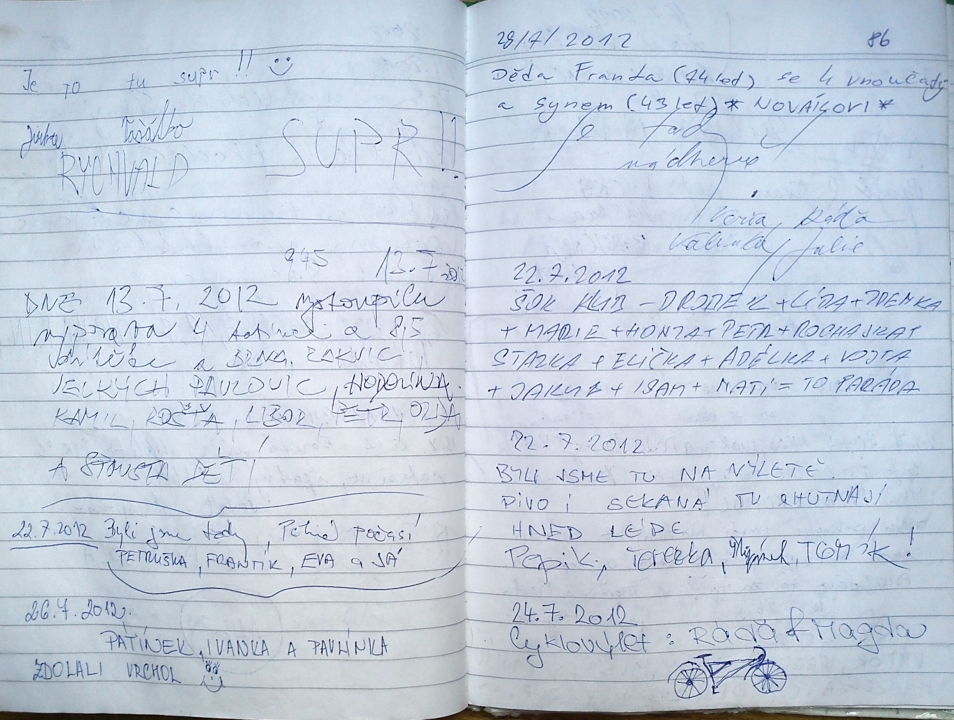 Je to tu supr !!
Jirka
RYCHVALD SUPR!!
945 13.7.
DNE 13.7. 2012
výprava 4 a 85
a BRNA, ZAKVIC
VELKÝCH PAVLOVIC, HODONÍNA.
KAMIL, KOSŤA, LIBOR, PETR, OLDA
A SPOUSTA DĚTÍ
22.7.2012 Byli jsme tady, Pěkné počasí
PETRUŠKA, FRANTÍK, EVA a JÁ
26.7.2012.
PATÍNEK, IVANKA A PAVLÍNKA
ZDOLALI VRCHOL
28/7/2012 86
Děda Franta (74 let) se 4 vnoučaty
a synem (43 let) * NOVÁKOVI *
Je tady
nádherně
Verča, Ráďa
Julie
22.7.2012
ŠOK KLUB - + LÍDA + ZDENKA
+ MARIE + HONZA + PETR +
STAZKA + ELIČKA + ADÉLKA + VOJTA
+ JAKUB + SAM + MATĚ = TO PARÁDA
22.7.2012
BYLI JSME TU NA VÝLETĚ.
PIVO I SEKANÁ TU CHUTNAJÍ
HNED LÉPE
Pepik, Terezka, TOMÍK!
24.7.2012
Cyklovýlet : Radă & Magda